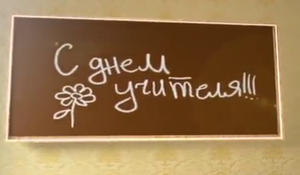 С днем
учителя!!!